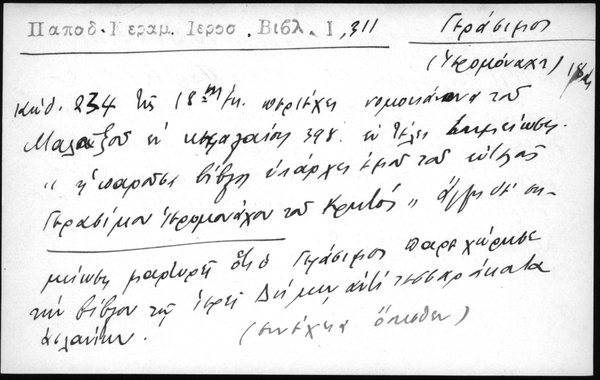 Παπαδ.Κεραμ. Ιεροσ .Βιβλ. Ι ,311
Γεράσιμος
(Ἱερομόναχος) 18ος
Κώδ. 234 τῆς 18ης ἑκ. περιέχει νομοκάνονα τοῦ
Μαλαξοῦ ἐν κεφαλαίοις 398. ἐν τέλει σημείωσις.
" ἡ παροῦσα βίβλος ὑπάρχει ἐμοῦ τοῦ εὐτελοῦς
Γερασίμου ἱερομονάχου τοῦ Κρητός " ἄλλη δὲ ση-
μείωσις μαρτυρεῖ ὅτι ὁ Γεράσιμος παρεχώρησε
τὴν βίβλον τῷ ἱερεῖ ἀντὶ τεσσαράκοντα
ἀσλανίων.
(συνέχεια ὄπισθεν)